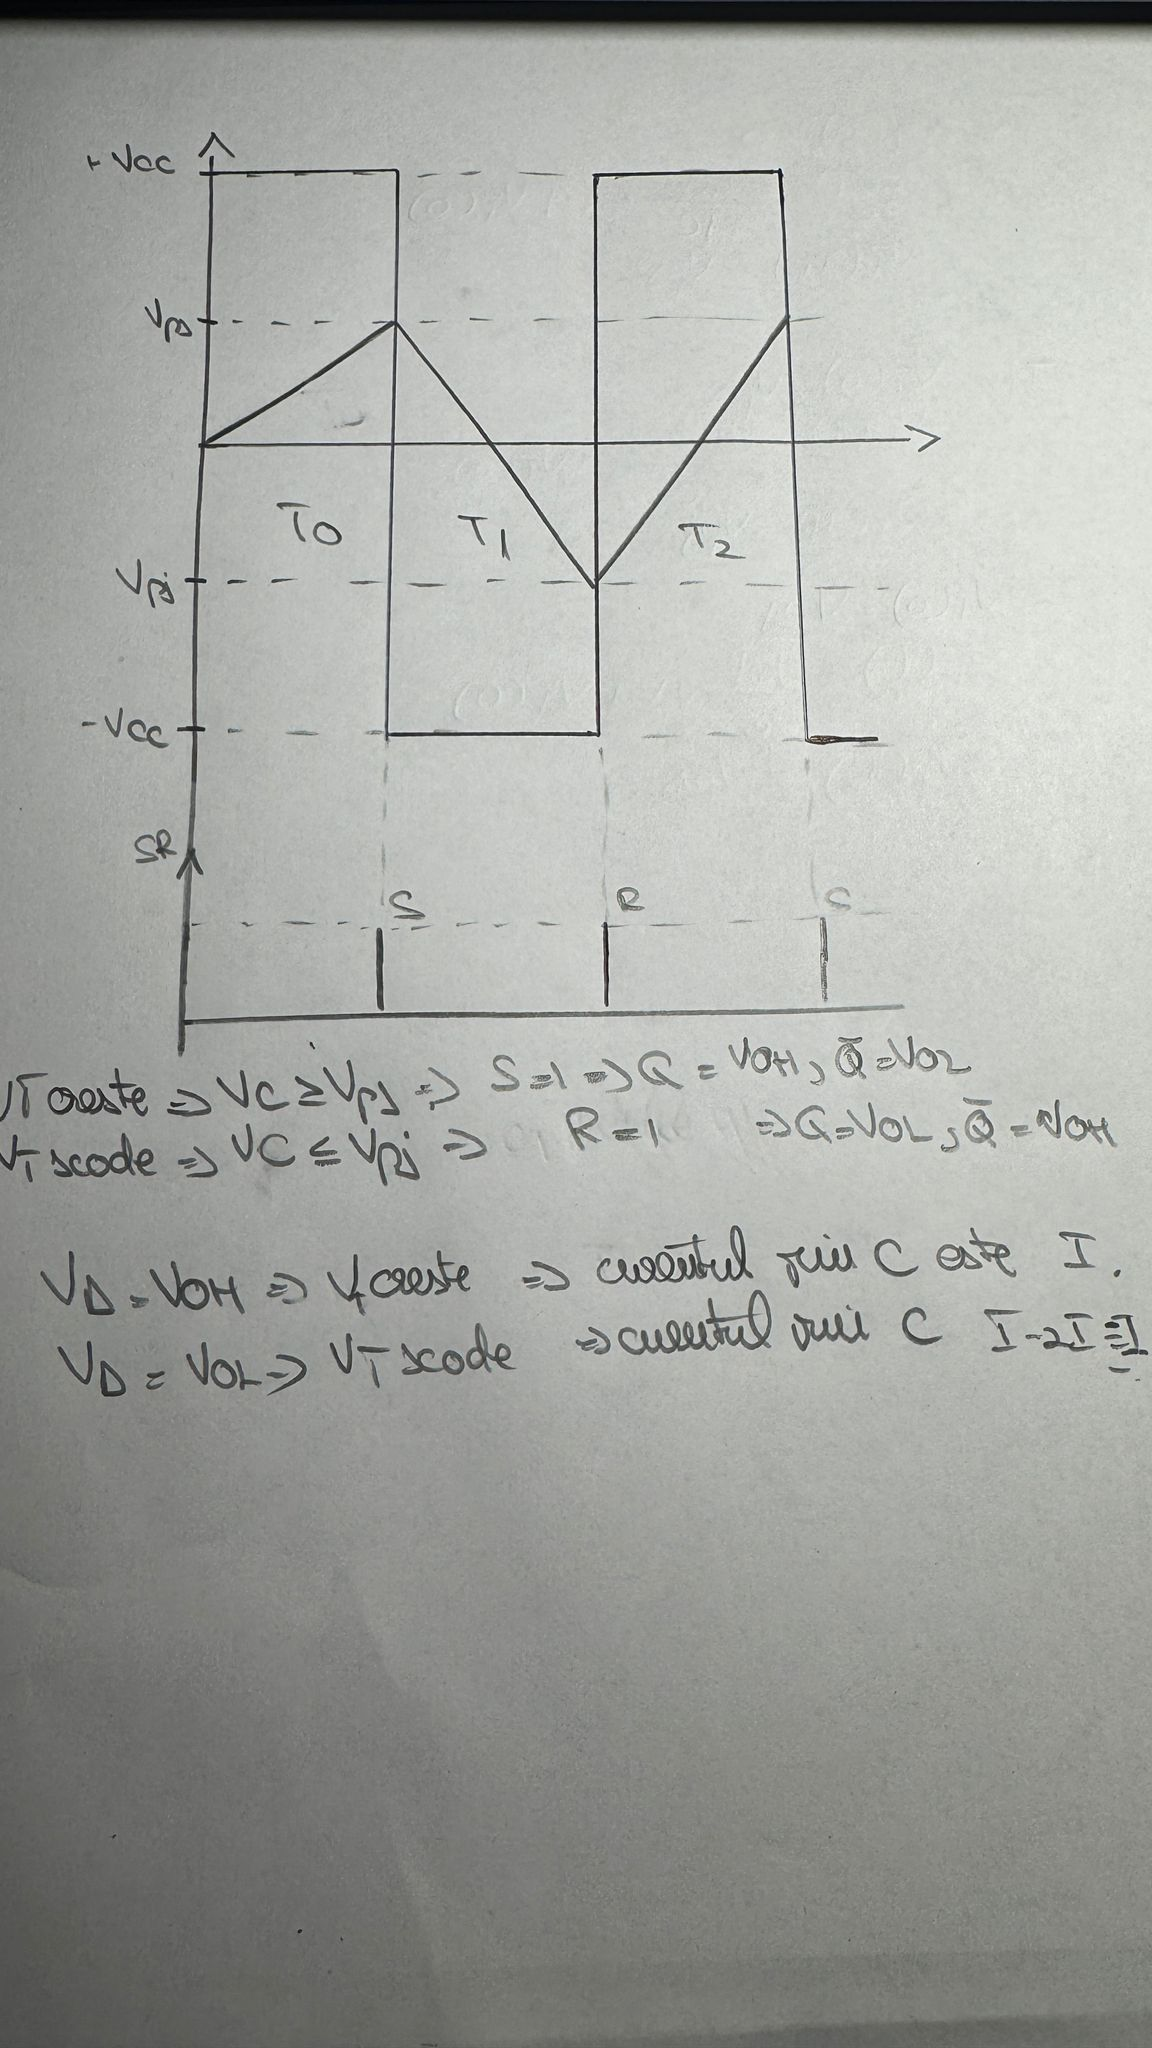 +Vcc
Vps
T0 T1 T2
Vpj
-Vcc
SR
S R S
VT creste => VC ≥ Vps => S=1 => Q = VOH, Q̄ = VOL
VT scade => VC ≤ Vpj => R=1 => Q=VOL, Q̄ = VOH
VD = VOH => VT creste => curentul prin C este I.
VD = VOL => VT scade => curentul prin C I-2I=-I